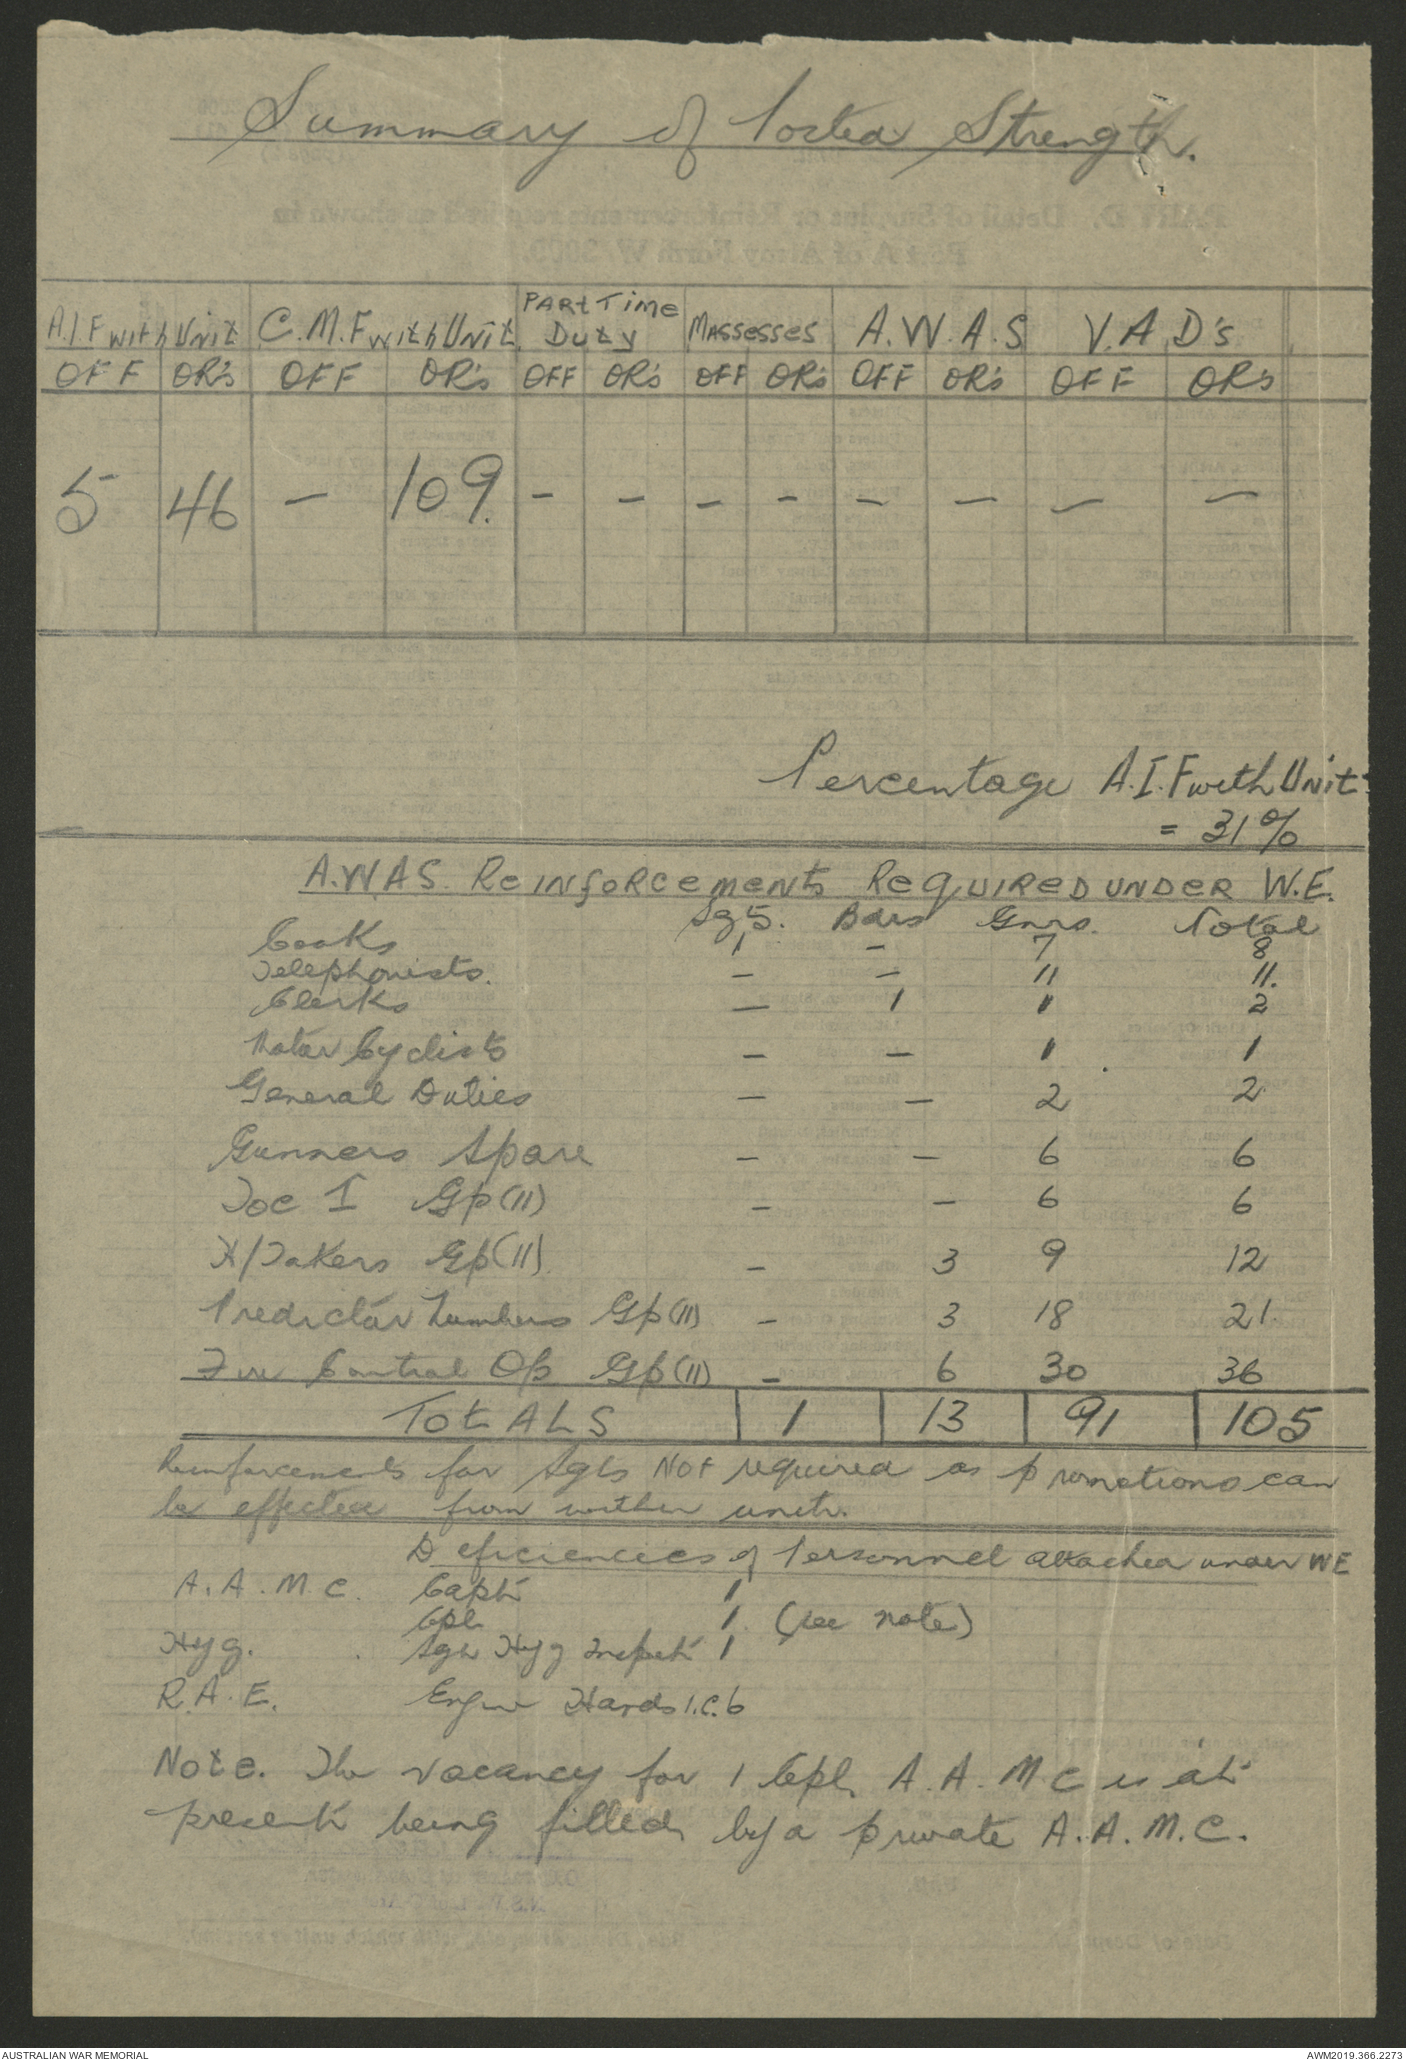 Summary of Posted Strength.
A.I.F with Unit C.M.F with Unit. PARt Time Duty Massesses A.W.A.S V.A.D's
OFF OR's OFF OR's OFF OR's OFF OR's OFF OR's OFF OR's
5 46 — 109. – – – – – — — —
Percentage A.I.F with Unit
= 31%
A.WAS. ReINfoRCemeNts RequiRed uNdeR W.E.
Sgs. Bdrs Gnrs. Total
Cooks 1 – 7 8
Telephonists. – – 11 11.
Clerks — 1 1 2
Motor Cyclists – — 1 1
General Duties — — 2 2
Gunners Spare – — 6 6
Loc I Gp (11) – – 6 6
H/Takers Gp (11) – 3 9 12
Predictor Numbers Gp (11) – 3 18 21
Fire Control Op Gp (11) – 6 30 36
TotALS 1 13 91 105
Reinforcements for Sgts Not required as promotions can
be effected from within unit.
Deficiencies of Personnel attached under WE
A.A.M.C. Capt 1
Cpl 1. (see note)
Hyg. Sgt Hyg Inspect 1
R.A.E. Engw Hands I.C. 6
Note. The vacancy for 1 Cpl A.A.M C is at
present being filled by a private A.A.M.C.
AUSTRALIAN WAR MEMORIAL AWM2019.366.2273